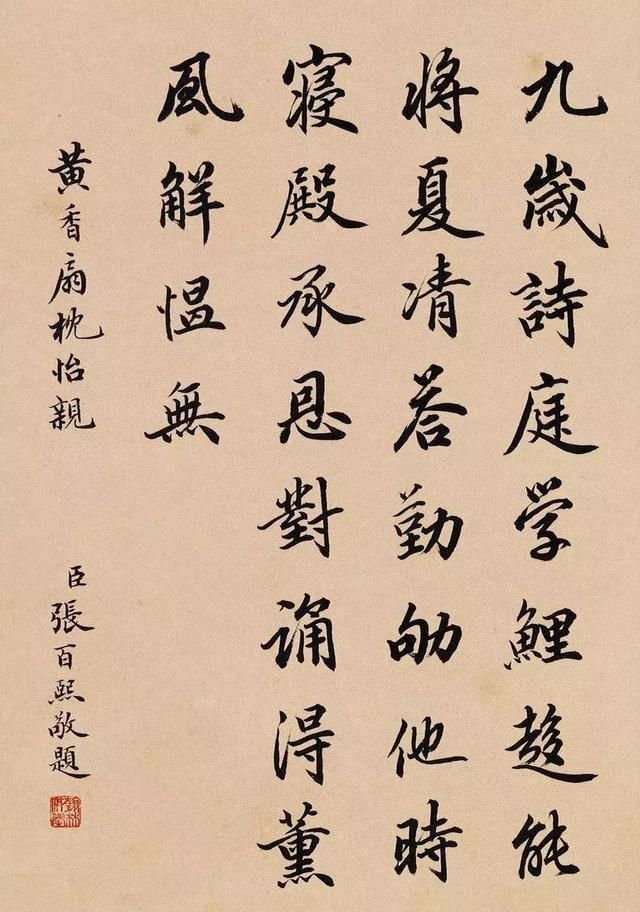 九歲詩庭学鯉趍能
將夏凊答勤劬他時
寢殿承恩對誦得薰
風解愠無
黄香扇枕怡親
臣張百熙敬題